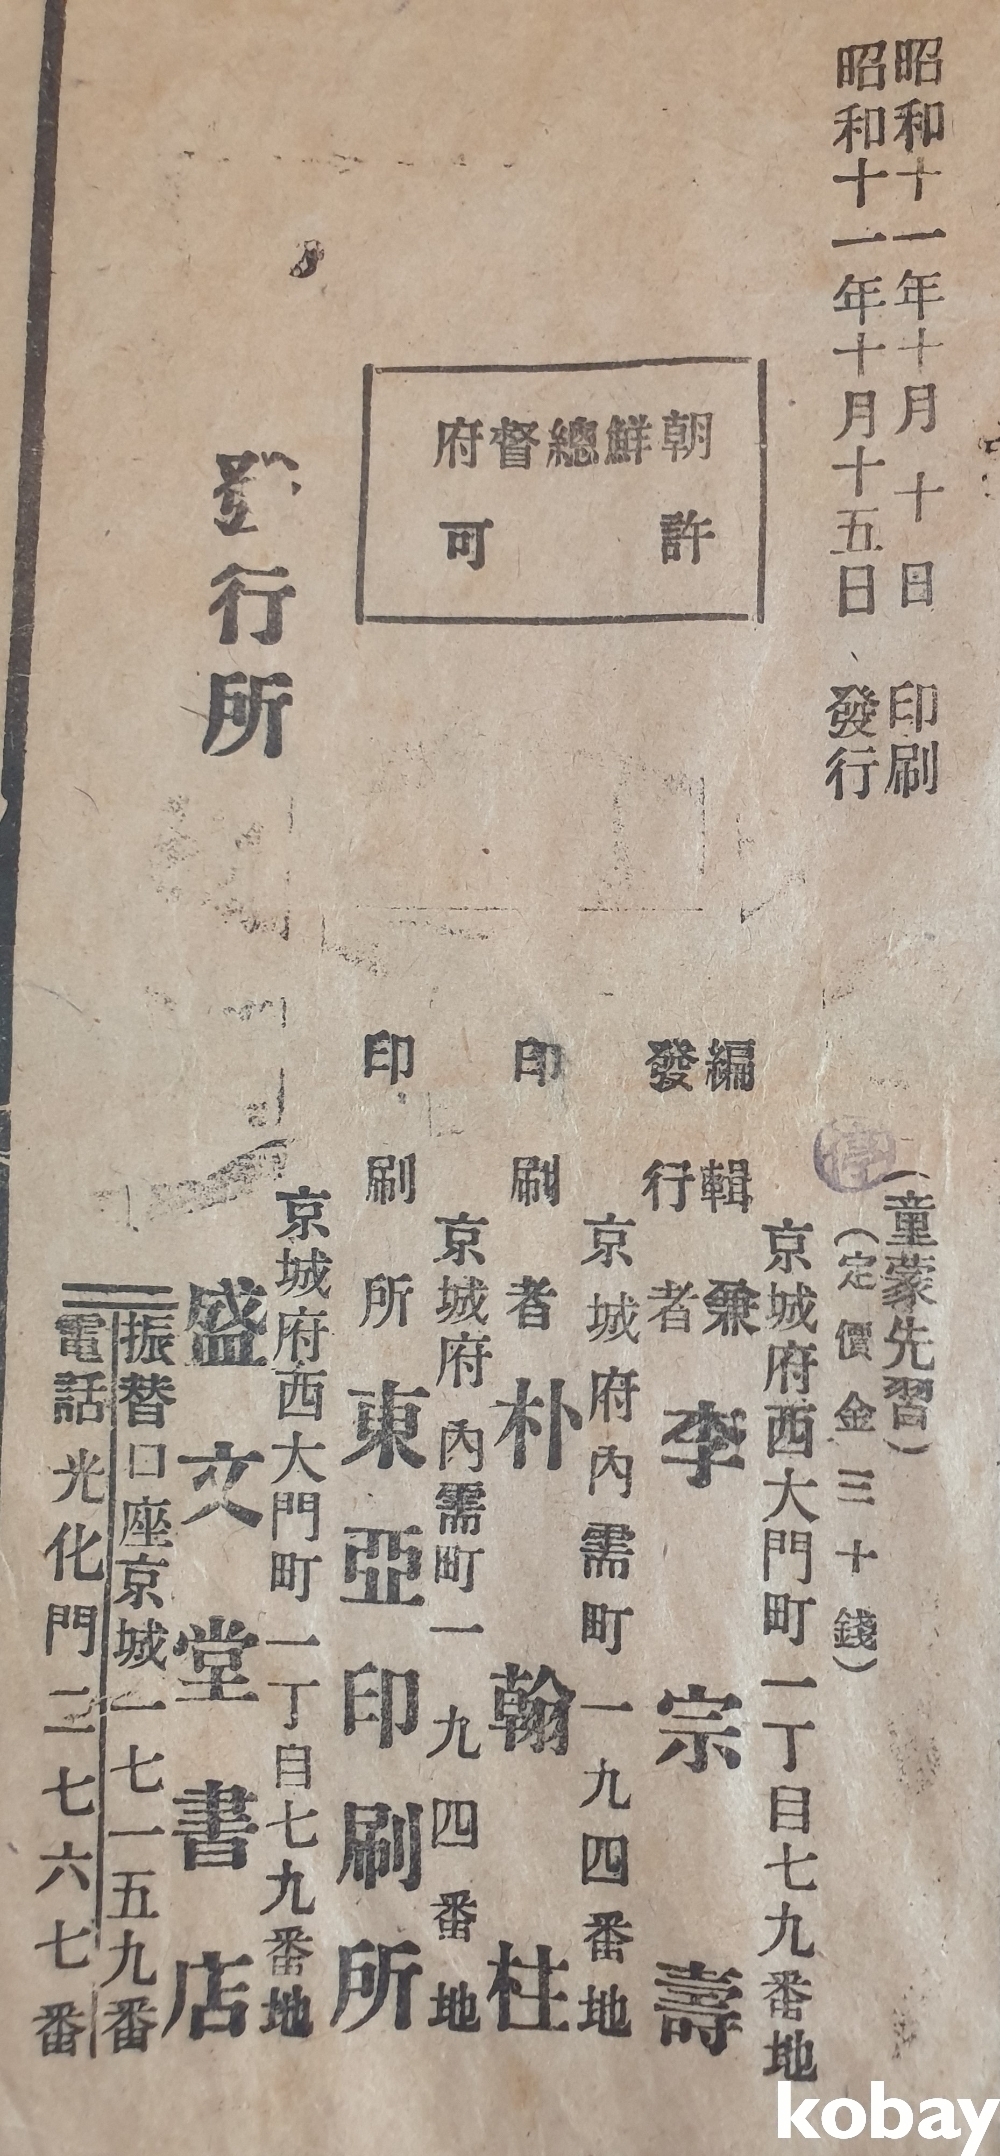 昭和十一年十月十日印刷
昭和十一年十月十五日發行
朝鮮總督府
許可
(童蒙先習)
(定價金三十錢)
京城府西大門町一丁目七九番地
編輯兼
發行者 李宗壽
京城府內需町一九四番地
印刷者 朴翰柱
京城府內需町一九四番地
印刷所 東亞印刷所
京城府西大門町一丁目七九番地
發行所 盛文堂書店
振替口座京城二七一五九番
電話光化門二七六七番
kobay